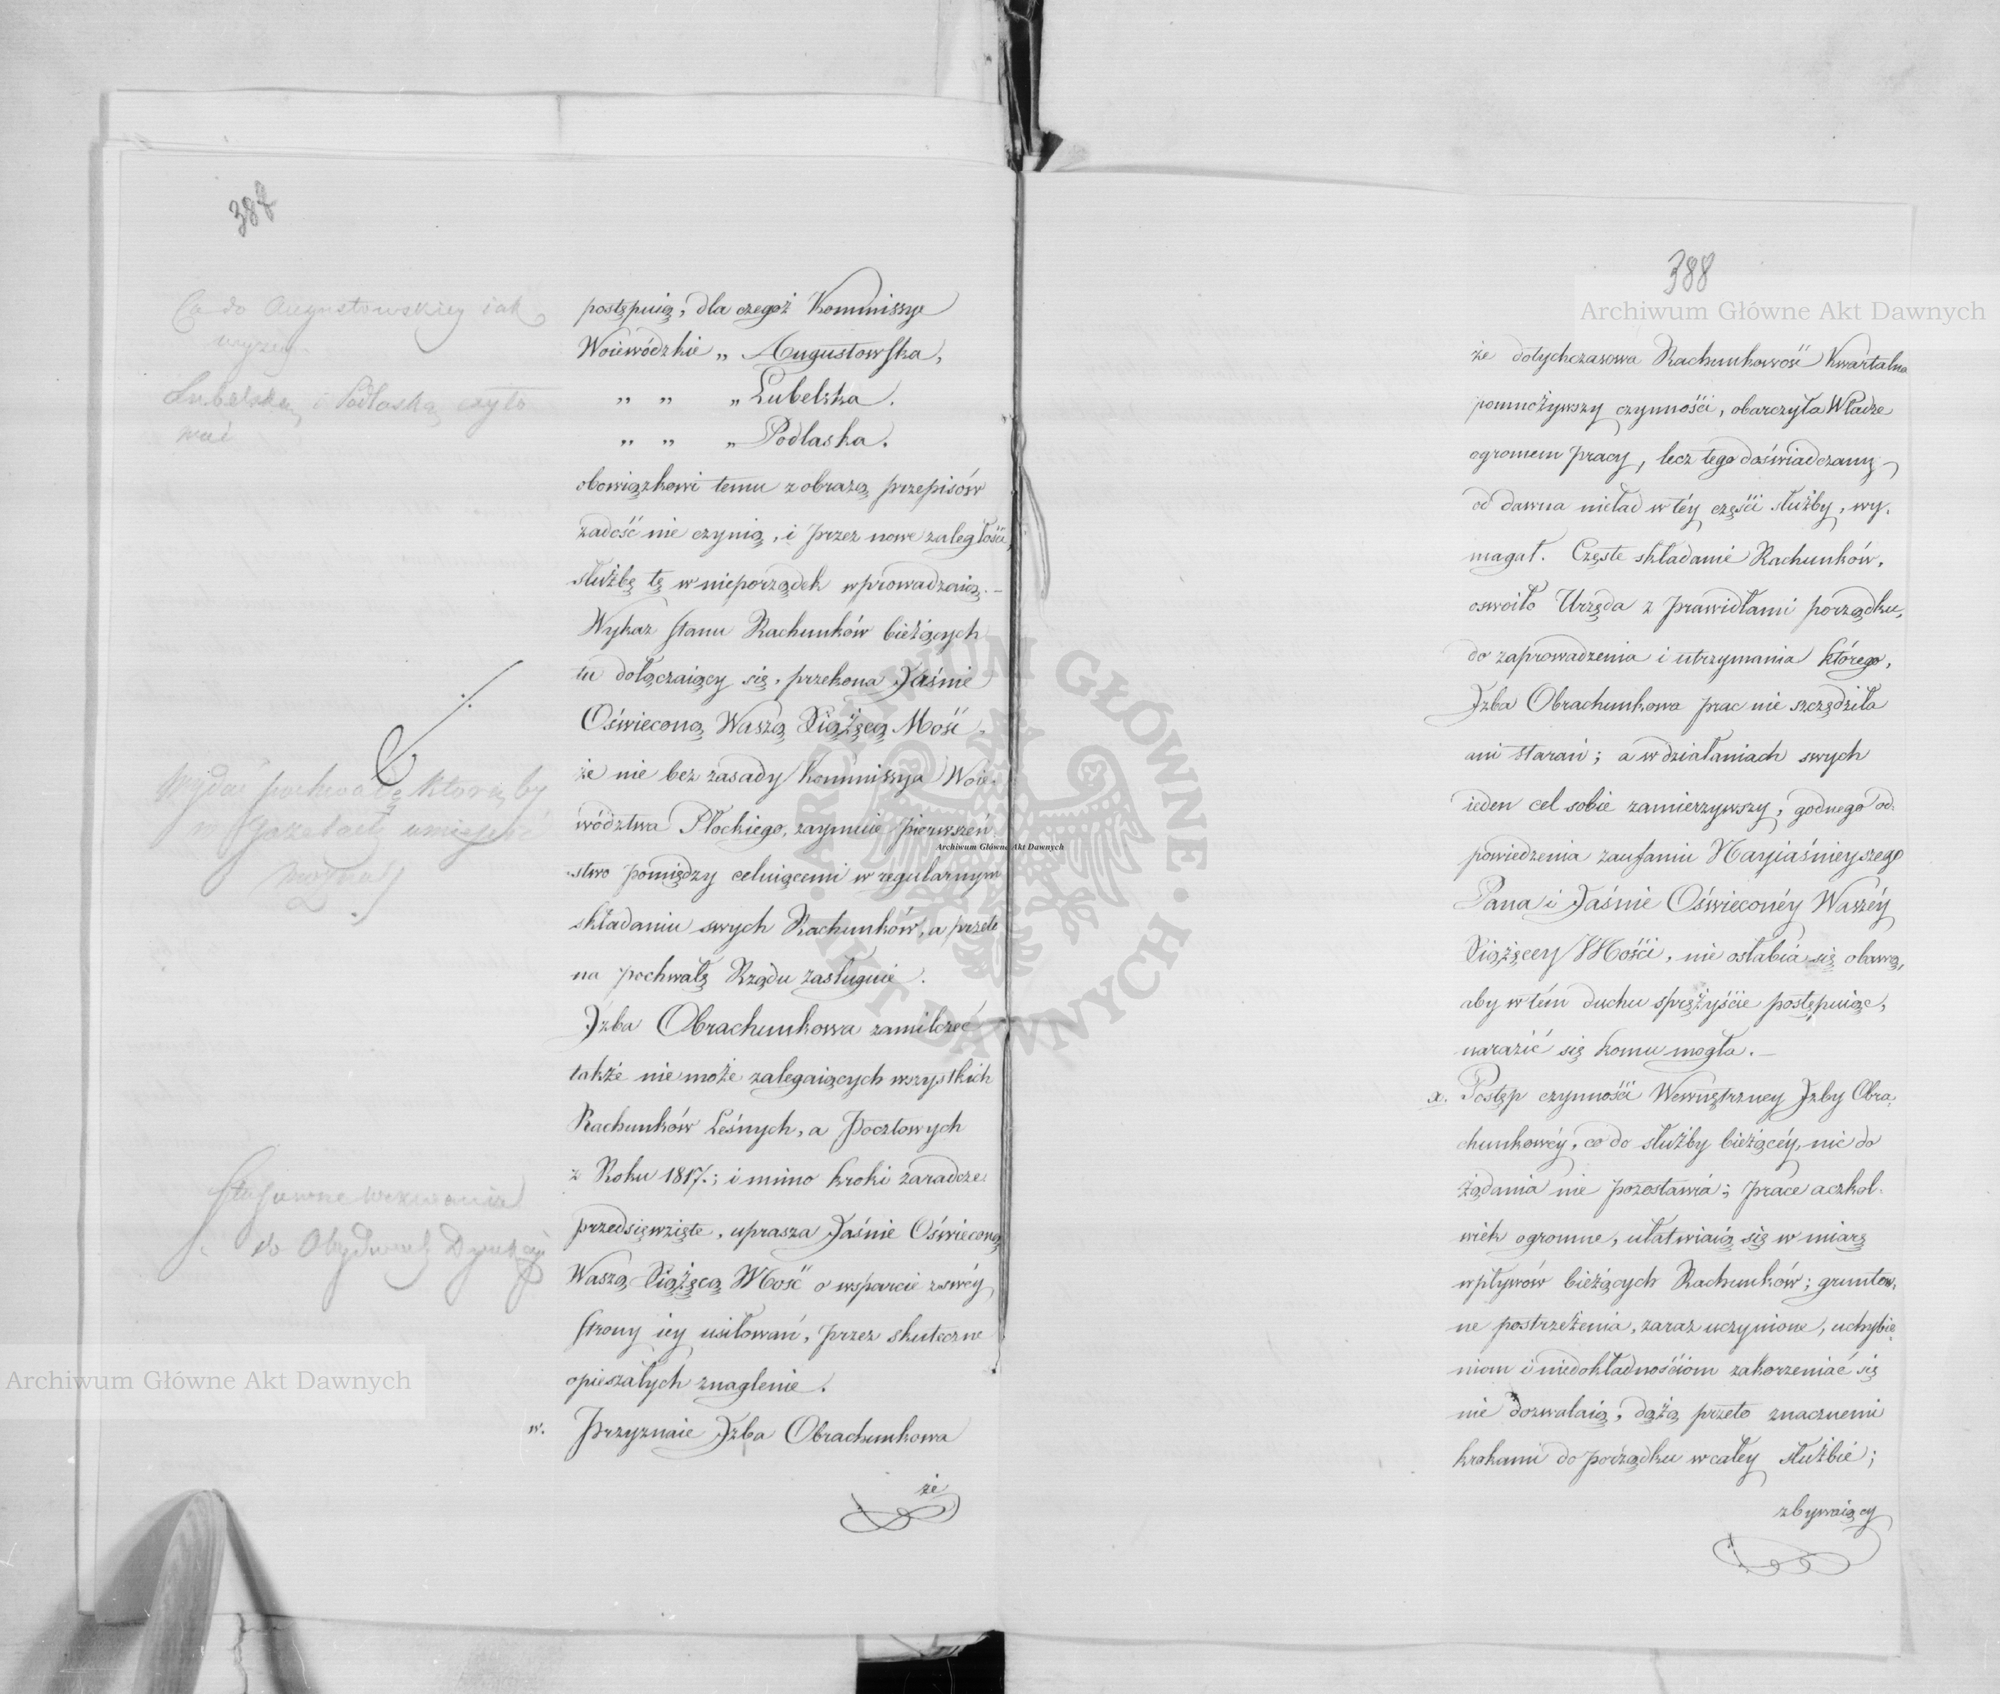 387
Co do Augustowskiey iak
wyżey.
Lubelską i Podlaską cyto
wać
postępuią, dla czegoż Kommissye
Woiewódzkie „ Augustowska,
„ „ „ Lubelska.
„ „ „ Podlaska.
obowiązkowi temu z obrazą przepisów
zadość nie czynią, i przez nowe zaległości,
służbę tę w nieporządek wprowadzaią.—
Wykaz stanu Rachunków bieżących
tu dołączaiący się, przekona Jaśnie
Oświeconą Waszą Xiążęcą Mość,
że nie bez zasady Kommissya Woie-
wództwa Płockiego, zaymuie pierwszeń-
stwo pomiędzy celuiącemi w regularnym
składaniu swych Rachunków, a przeto
na pochwałę Rządu zasługuie.
Wydać pochwałę którąby
w gazetach umieścić
można
Izba Obrachunkowa zamilczeć
także nie może zalegaiących wszystkich
Rachunków Leśnych, a Pocztowych
z Roku 1817.; i mimo kroki zaradcze
przedsięwzięte, uprasza Jaśnie Oświeconą
Waszą Xiążęcą Mość o wsparcie z swéy
strony iey usiłowań, przez skuteczne
opieszałych znaglenie.
wezwania
do Obydwóch Dyrekcyi
w. Przyznaie Izba Obrachunkowa
że
388
że dotychczasowa Rachunkowość Kwartalna
pomnożywszy czynności, obarczyła Władze
ogromem pracy, lecz tego doświadczany
od dawna nieład w téy części służby, wy-
magał. Częste składanie Rachunków,
oswoiło Urzęda z prawidłami porządku,
do zaprowadzenia i utrzymania którego,
Izba Obrachunkowa prac nie szczędziła
ani starań; a w działaniach swych
ieden cel sobie zamierzywszy, godnego od-
powiedzenia zaufaniu Nayiaśnieyszego
Pana i Jaśnie Oświeconéy Waszéy
Xiążęcey Mości, nie osłabia się obawą,
aby w tém duchu sprężyście postępuiąc,
narazić się komu mogła.—
x. Postęp czynności Wewnętrzney Izby Obra-
chunkowéy, co do służby bieżącéy, nic do
żądania nie pozostawia; prace aczkol-
wiek ogromne, ułatwiaią się w miarę
wpływów bieżących Rachunków; gruntow-
ne postrzeżenia, zaraz uczynione, uchybie-
niom i niedokładnościom zakorzeniać się
nie dozwalaią, dążą przeto znacznemi
krokami do porządku w całey służbie;
zbywaiący
Archiwum Główne Akt Dawnych
Archiwum Główne Akt Dawnych
Archiwum Główne Akt Dawnych
ARCHIWUM GŁÓWNE · AKT DAWNYCH ·